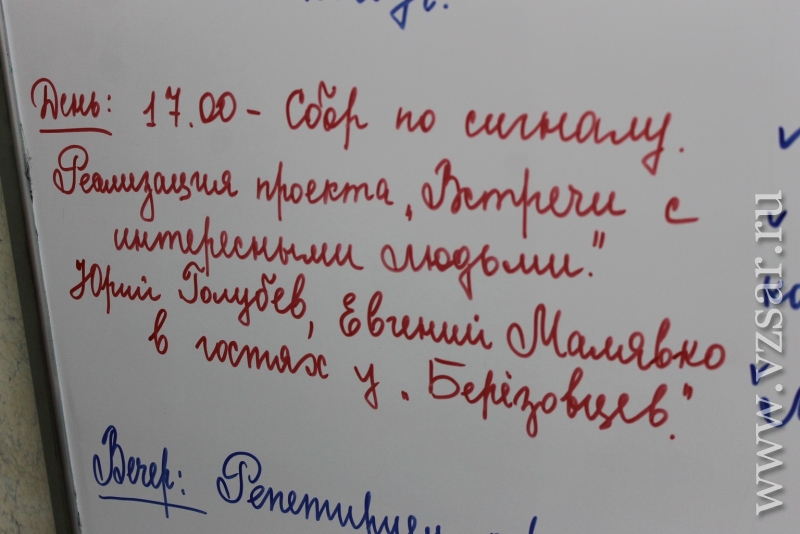 День: 17.00 - Сбор по сигналу.
Реализация проекта „Встречи с
интересными людьми."
Юрий Голубев, Евгений Малявко
в гостях у „Берёзовцев."
Вечер: Репетируем
www.vzsar.ru